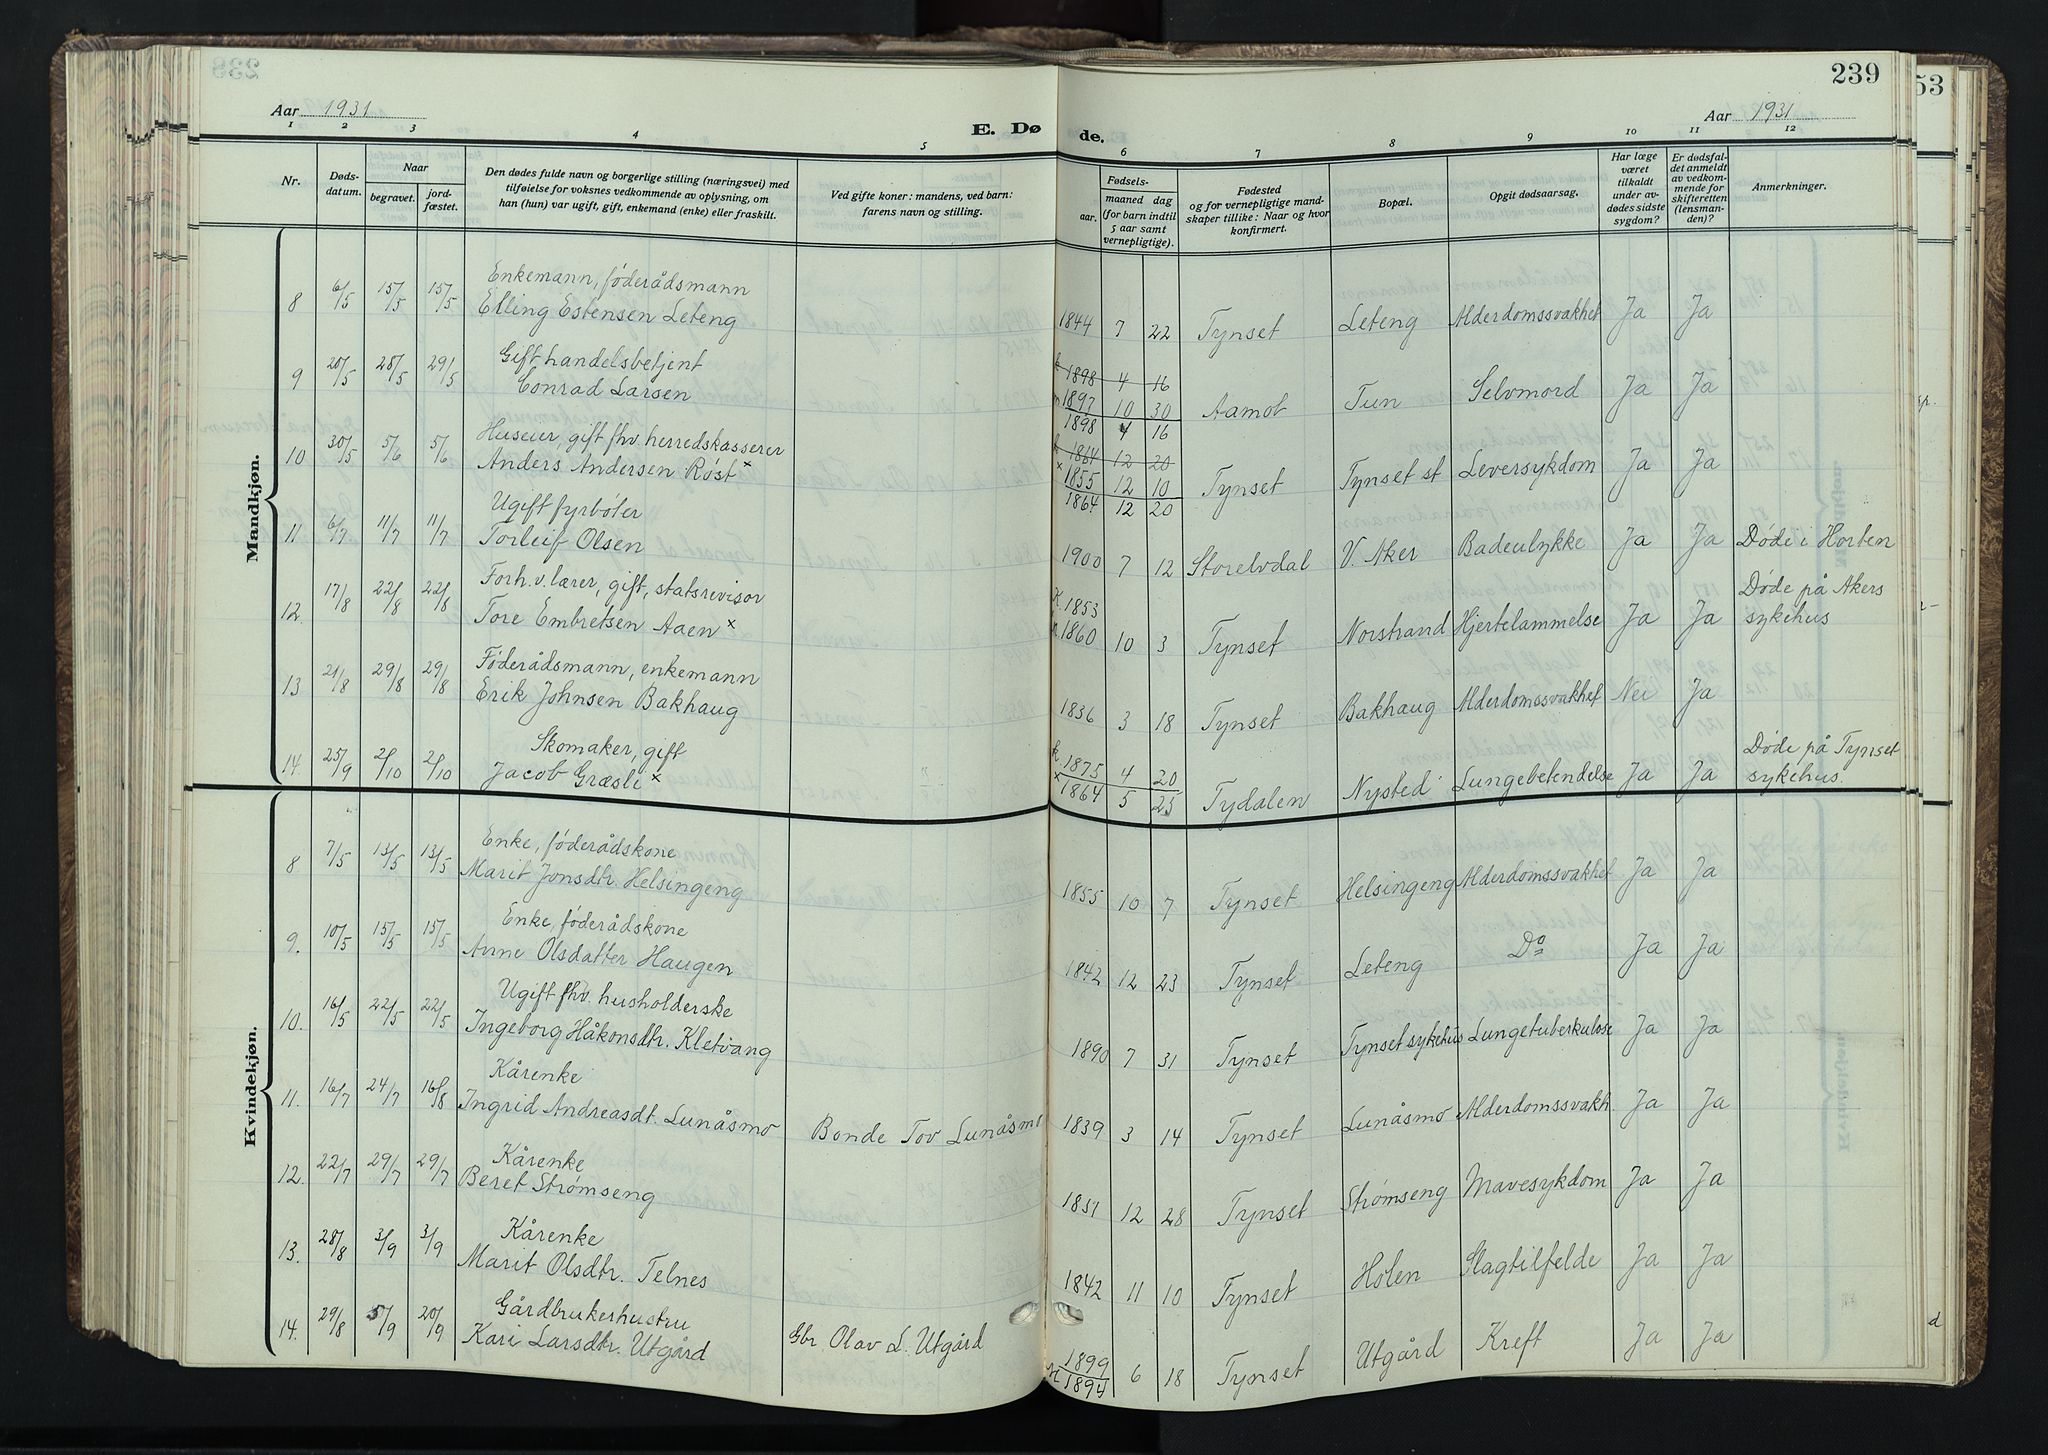 239
53
Aar 1931
E. Dø de.
Aar 1931
1 2 3 4 5 6 7 8 9 10 11 12
Nr.
Døds-
datum.
Naar
begravet.
jord-
fæstet.
Den dødes fulde navn og borgerlige stilling (næringsvei) med
tilføielse for voksnes vedkommende av oplysning, om
han (hun) var ugift, gift, enkemand (enke) eller fraskilt.
Ved gifte koner: mandens, ved barn:
farens navn og stilling.
Fødsels-
aar.
maaned dag
(for barn indtil
5 aar samt
vernepligtige).
Fødested
og for vernepligtige mand-
skaper tillike: Naar og hvor
konfirmert.
Bopæl.
Opgit dødsaarsag.
Har læge
været
tilkaldt
under av-
dødes sidste
sygdom?
Er dødsfal-
det anmeldt
av vedkom-
mende for
skifteretten
(lensman-
den)?
Anmerkninger.
Mandkjøn.
Enkemann, föderådsmann
8 6/5 15/5 15/5 Elling Estensen Leteng 1844 7 22 Tynset Leteng Alderdomssvakhet Ja Ja
Gift handelsbetjent
k 1898 4 16
9 20/5 28/5 29/5 Conrad Larsen 1897 10 30 Aamot Tun Selvmord Ja Ja
1898 4 16
Huseier, gift fhv. herredskasserer
k 1864 12 20
10 30/5 5/6 5/6 Anders Andersen Røst x x 1855 12 10 Tynset Tynset st Leversykdom Ja Ja
1864 12 20
Ugift fyrbøter
11 6/7 11/7 11/7 Torleif Olsen 1900 7 12 Storelvdal V. Aker Badeulykke Ja Ja Døde i Horten
Forh. v. lærer, gift, statsrevisor
K 1853 Døde på Akers
12. 17/8 22/8 22/8 Tore Embretsen Aaen x 1860 10 3 Tynset Norstrand Hjertelammelse Ja Ja sykehus
Føderådsmann, enkemann
13 21/8 29/8 29/8 Erik Johnsen Bakhaug 1836 3 18 Tynset Bakhaug Alderdomssvakhet Nei Ja
Skomaker, gift
k 1875 4 20 Døde på Tynset
14. 25/9 2/10 2/10 Jacob Græsli x x 1864 5 25 Tydalen Nysted Lungebetendelse Ja Ja sykehus.
Kvindekjøn.
Enke, föderådskone
8 7/5 13/5 13/5 Marit Jonsdtr. Helsingeng 1855 10 7 Tynset Helsingeng Alderdomssvakhet Ja Ja
Enke, föderådskone
9. 10/5 15/5 15/5 Anne Olsdatter Haugen 1842 12 23 Tynset Leteng Do Ja Ja
Ugift fhv. husholderske
10. 16/5 22/5 22/5 Ingeborg Håkonsdtr. Kletvang 1890 7 31 Tynset Tynset sykehus Lungetuberkulose Ja Ja
Kårenke
11. 16/7 24/7 16/8 Ingrid Andreasdt. Lunåsmo Bonde Tov Lunåsmo 1839 3 14 Tynset Lunåsmo Alderdomssvakh. Ja Ja
Kårenke
12. 22/7 29/7 29/7 Beret Strømseng 1851 12 28 Tynset Strømseng Mavesykdom Ja Ja
Kårenke
13. 28/8 3/9 3/9 Marit Olsdtr. Telnes 1842 11 10 Tynset Holen Slagtilfelde Ja Ja
Gårdbrukerhustru
14. 29/8 5/9 20/9 Kari Larsdtr. Utgård Gbr Olav L. Utgård 1899 6 18 Tynset Utgård Kreft Ja Ja
K 1894